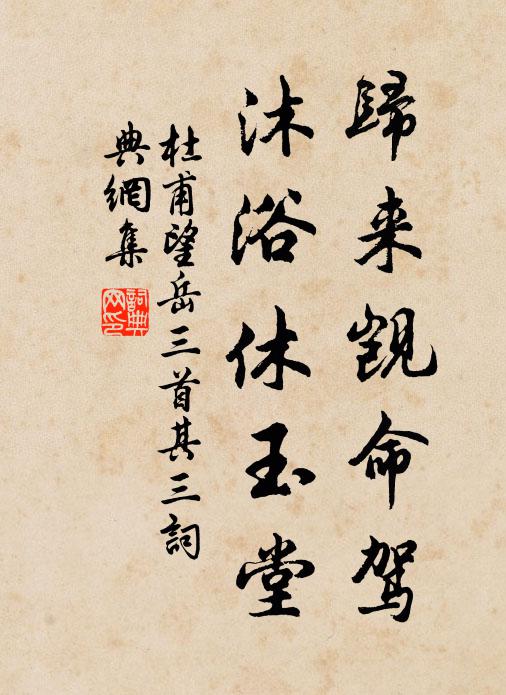 歸来觊命駕
沐浴休玉堂
杜甫望岳三首其三詞
典網集
詞典
网印